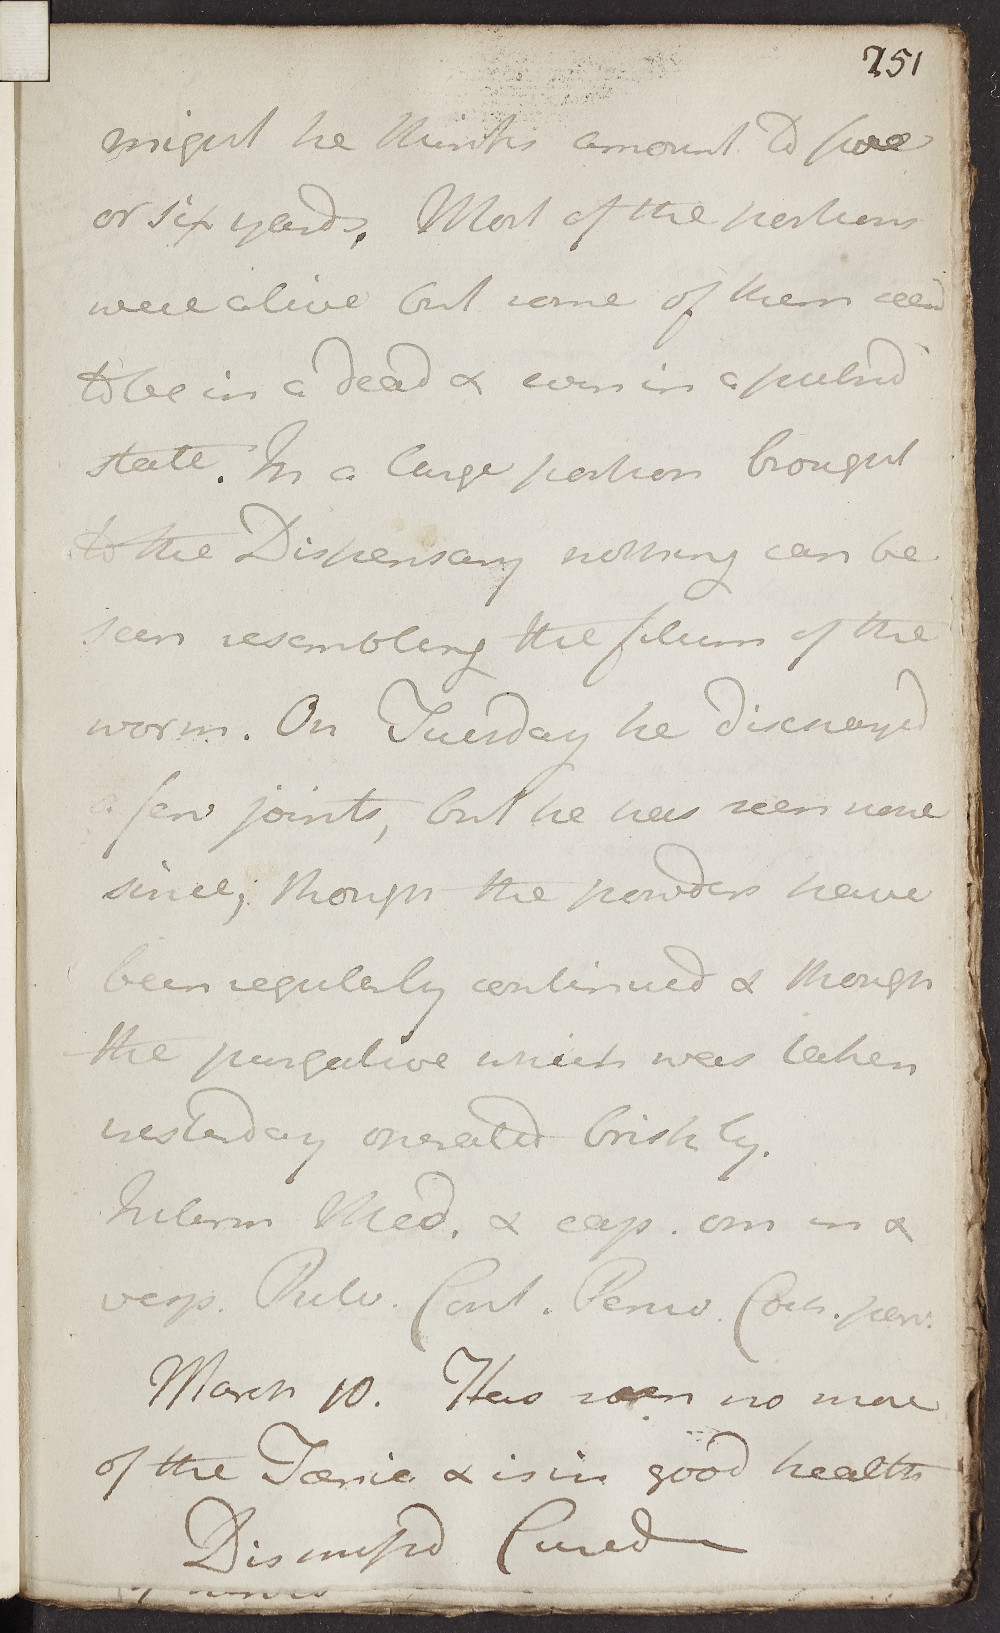 251
might he thinks amount to five
or six yards. Most of the portions
were alive but some of them seem'd
to be in a dead & even in a putrid
state. In a large portion brought
to the Dispensary nothing can be
seen resembling the filum of the
worm. On Tuesday he discharged
a few joints, but he has seen none
since; though the powders have
been regularly continued & though
the purgative which was taken
yesterday operated briskly.
Interm Med. & cap. om m &
vesp. Pulv. Cort. Peruv.
March 10. Has seen no more
of the Tænia & is in good health
Dismiss'd Cured